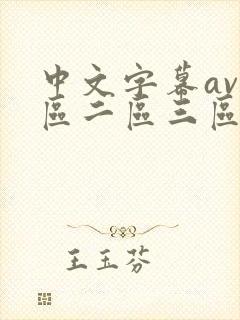 中文字幕av
區二區三區
王玉芬